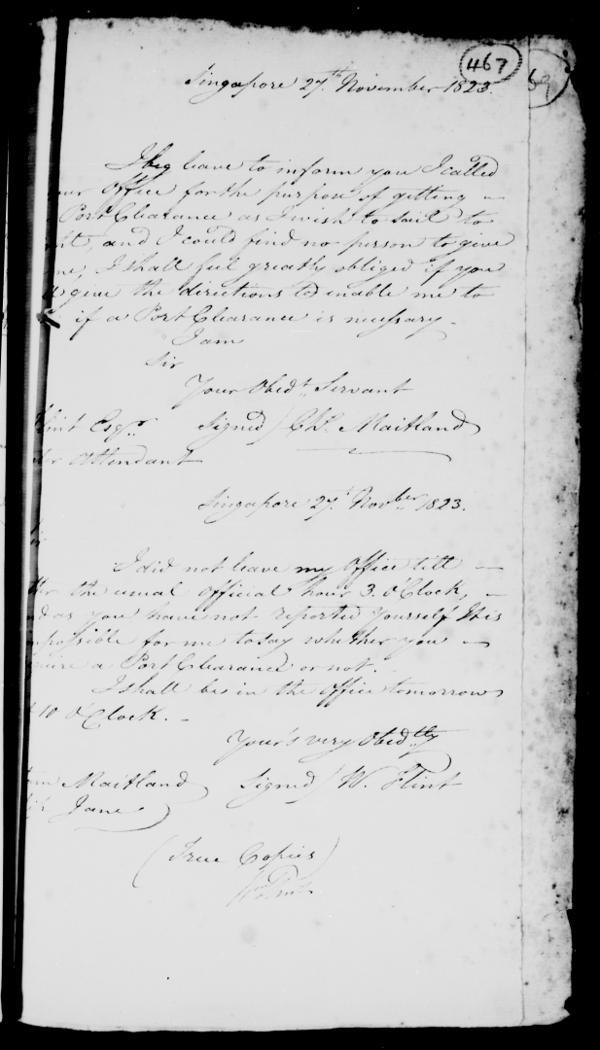 467
69
Singapore 27th November 1823.
I beg leave to inform you I called
our Office for the purpose of getting –
Port Clearance as I wish to sail to
ht, and I could find no person to give
me, I shall feel greatly obliged if you
give the directions to enable me to
if a Port Clearance is necessary –
I am
Sir
Your Obedt. Servant
Flint Esqr. Signed / Chs. Maitland
ter Attendant
Singapore 27t. Novber 1823.
I did not leave my Office till –
the usual official hour 3. O'Clock, –
as you have not reported yourself it is
mpossible for me to say whether you –
quire a Port Clearance or not. –
I shall be in the office tomorrow
10 O'Clock. –
Your's very Obedtly
Maitland Signed / W. Flint
Jane
(True Copies)
W. Flint